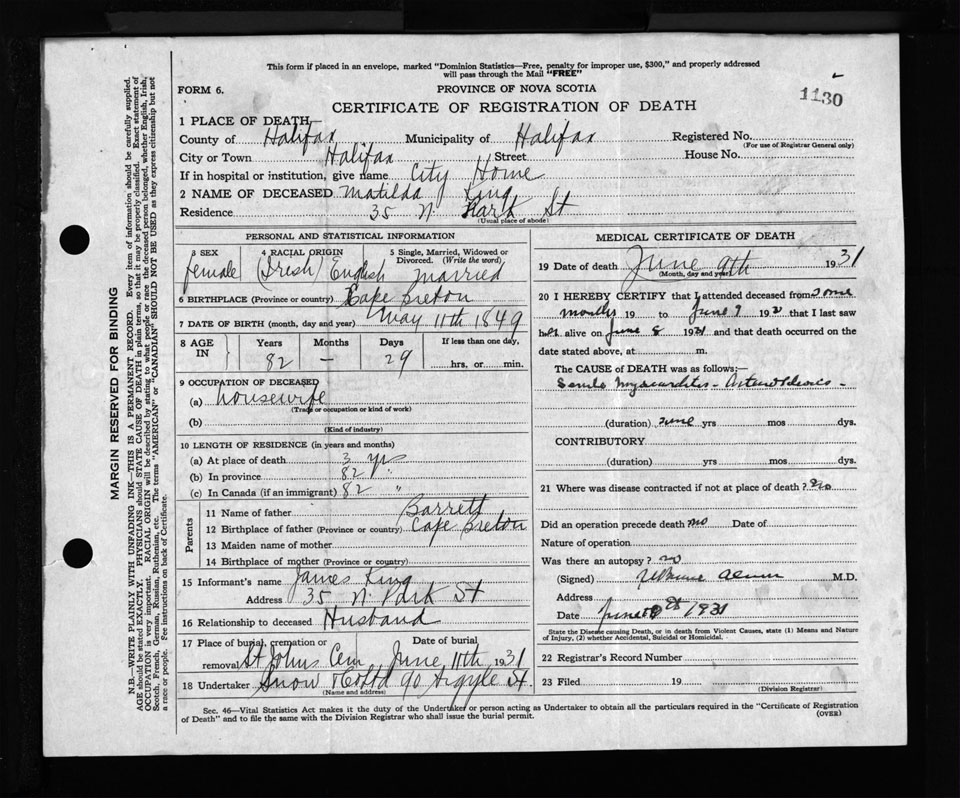 This form if placed in an envelope, marked "Dominion Statistics—Free, penalty for improper use, $300," and properly addressed
will pass through the Mail "FREE"
FORM 6.
PROVINCE OF NOVA SCOTIA
1130
CERTIFICATE OF REGISTRATION OF DEATH
1 PLACE OF DEATH
County of Halifax Municipality of Halifax Registered No.
(For use of Registrar General only)
City or Town Halifax Street House No.
If in hospital or institution, give name City Home
2 NAME OF DECEASED Matilda King
Residence 35 N. Park St
(Usual place of abode)
PERSONAL AND STATISTICAL INFORMATION
3 SEX 4 RACIAL ORIGIN 5 Single, Married, Widowed or
Divorced. (Write the word)
female (Irish) English married
6 BIRTHPLACE (Province or country) Cape Breton
7 DATE OF BIRTH (month, day and year) May 11th 1849
8 AGE IN Years Months Days If less than one day,
82 — 29 hrs, or min.
9 OCCUPATION OF DECEASED
(a) housewife
(Trade or occupation or kind of work)
(b)
(Kind of industry)
10 LENGTH OF RESIDENCE (in years and months)
(a) At place of death 3 yrs
(b) In province 82 "
(c) In Canada (if an immigrant) 82 "
Parents
11 Name of father Barrett
12 Birthplace of father (Province or country) Cape Breton
13 Maiden name of mother
14 Birthplace of mother (Province or country)
15 Informant's name James King
Address 35 N. Park St
16 Relationship to deceased Husband
17 Place of burial, cremation or Date of burial
removal St Johns Cem June 11th 1931
18 Undertaker Snow & Co Ltd 90 Argyle St.
(Name and address)
MEDICAL CERTIFICATE OF DEATH
19 Date of death June 9th 1931
(Month, day and year)
20 I HEREBY CERTIFY that I attended deceased from some
months 19 to June 9 19 that I last saw
her alive on June 8 1931 and that death occurred on
date stated above, at m.
The CAUSE OF DEATH was as follows:—
Senile myocarditis - Arteriosclerosis -
(duration) some yrs mos dys.
CONTRIBUTORY
(duration) yrs mos dys.
21 Where was disease contracted if not at place of death?
Did an operation precede death no Date of
Nature of operation
Was there an autopsy? no
(Signed) M.D.
Address
Date June 1931
State the Disease causing Death, or in death from Violent Causes, state (1) Means and Nature
of Injury, (2) whether Accidental, Suicidal or Homicidal.
22 Registrar's Record Number
23 Filed 19
(Division Registrar)
Sec. 46—Vital Statistics Act makes it the duty of the Undertaker or person acting as Undertaker to obtain all the particulars required in the "Certificate of Registration
of Death" and to file the same with the Division Registrar who shall issue the burial permit.
(OVER)
MARGIN RESERVED FOR BINDING
N.B.—WRITE PLAINLY WITH UNFADING INK—THIS IS A PERMANENT RECORD. Every item of information should be carefully supplied.
AGE should be stated EXACTLY. PHYSICIANS should STATE CAUSE OF DEATH in plain terms, so that it may be properly classified. Exact statement of
OCCUPATION is very important. RACIAL ORIGIN will be described by stating to what people or race the deceased person belonged, whether English, Irish,
Scotch, French, German, Russian, Ruthenian, etc. The terms "AMERICAN" or "CANADIAN" SHOULD NOT BE USED as they express citizenship but not
a race or people. See instructions on back of Certificate.